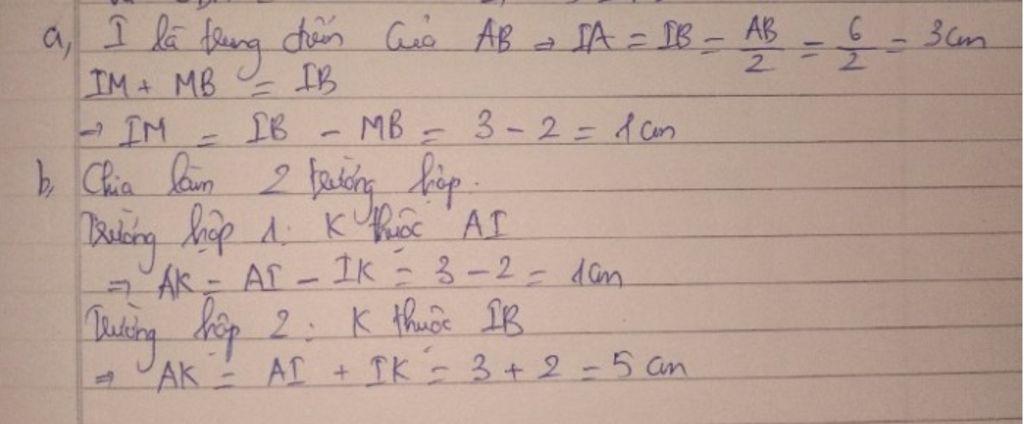 a, I là trung điểm của AB ⇒ IA = IB = AB/2 = 6/2 = 3cm
IM + MB = IB
→ IM = IB - MB = 3 - 2 = 1cm
b, Chia làm 2 trường hợp.
Trường hợp 1: K thuộc AI
⇒ AK = AI - IK = 3 - 2 = 1cm
Trường hợp 2: K thuộc IB
⇒ AK = AI + IK = 3 + 2 = 5cm